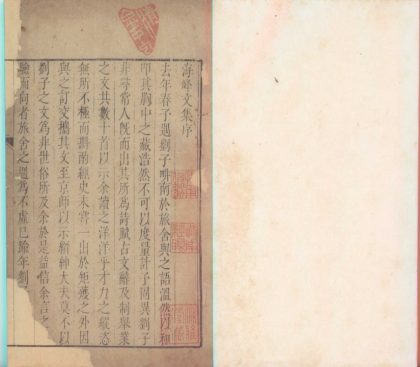 海峰文集序
去年春予遇劉子畊南於旅舍與之語溫然以和
即其胸中之藏浩然不可以度量計予固異劉子
非尋常人旣而出其所為詩賦古文辭及制舉業
之文共數十首以示余讀之洋洋乎才力之縱恣
無所不極而斟酌經史未嘗一出於矩矱之外因
與之訂交攜其文至京師以示縉紳大夫莫不以
劉子之文為非世俗所及余於是益信余言之
驗而向者旅舍之遇為不虛已踰年劉